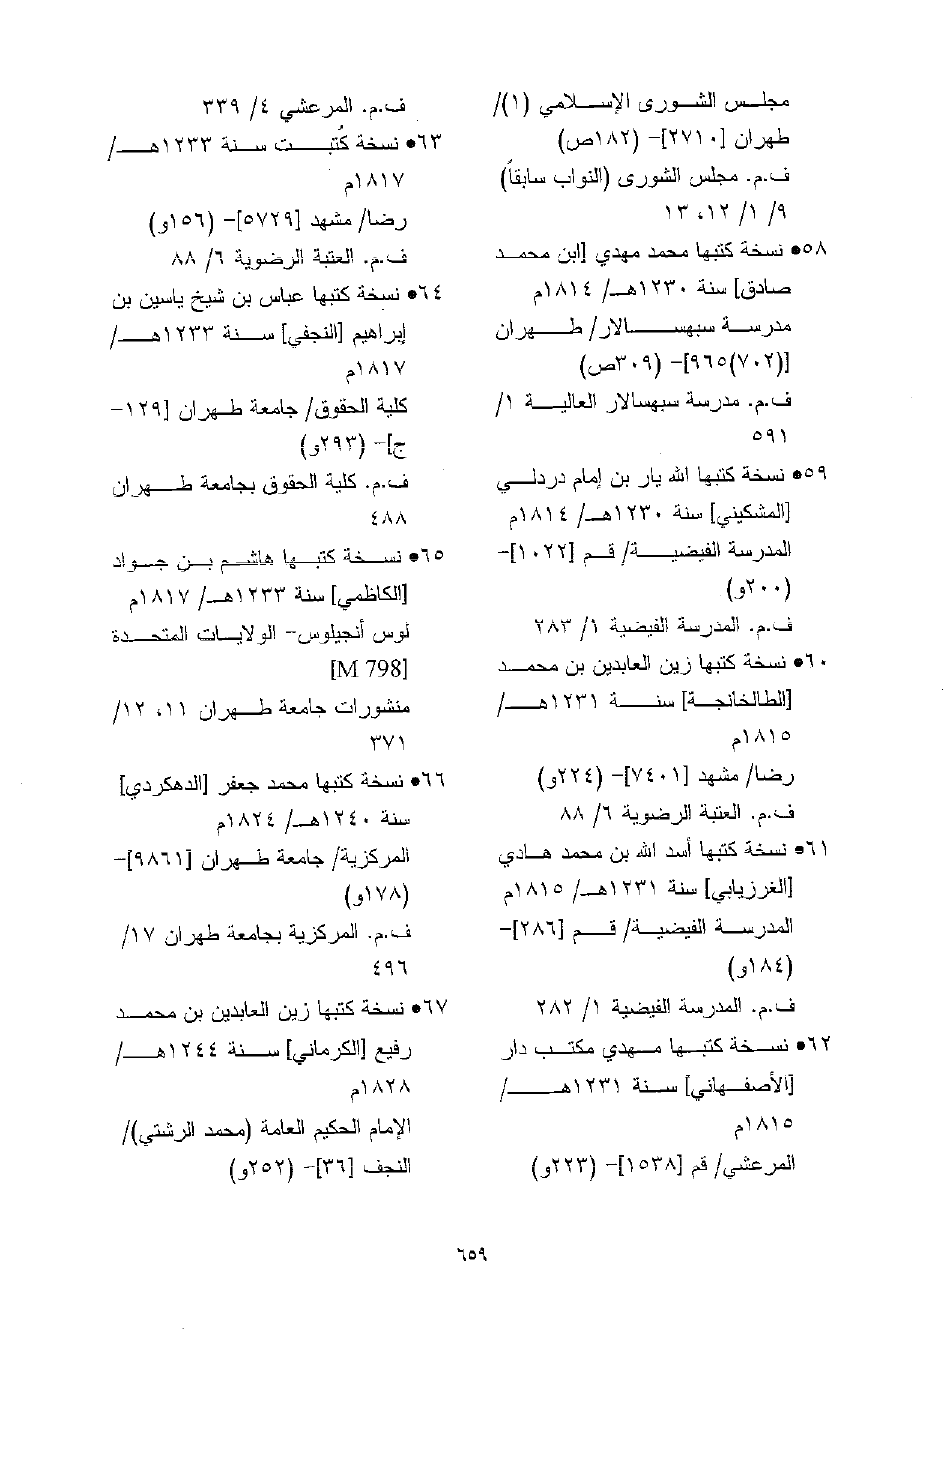 مجلس الشورى الإسلامي (١)/
طهران [٢٧١٠]- (١٨٢ص)
ف.م. مجلس الشورى (النواب سابقاً)
٩/ ١/ ١٢، ١٣
٥٨• نسخة كتبها محمد مهدي [ابن محمد
صادق] سنة ١٢٣٠هـ/ ١٨١٤م
مدرسة سبهسالار/ طهران
[(٧٠٢)٩٦٥]- (٣٠٩ص)
ف.م. مدرسة سبهسالار العالية ١/
٥٩١
٥٩• نسخة كتبها الله يار بن إمام دردلي
[المشكيني] سنة ١٢٣٠هـ/ ١٨١٤م
المدرسة الفيضية/ قم [١٠٢٢]-
(٢٠٠و)
ف.م. المدرسة الفيضية ١/ ٢٨٣
٦٠• نسخة كتبها زين العابدين بن محمد
[الطالخانجة] سنة ١٢٣١هـ/
١٨١٥م
رضا/ مشهد [٧٤٠١]- (٢٢٤و)
ف.م. العتبة الرضوية ٦/ ٨٨
٦١• نسخة كتبها أسد الله بن محمد هادي
[الغرزيابي] سنة ١٢٣١هـ/ ١٨١٥م
المدرسة الفيضية/ قم [٢٨٦]-
(١٨٤و)
ف.م. المدرسة الفيضية ١/ ٢٨٢
٦٢• نسخة كتبها مهدي مكتب دار
[الأصفهاني] سنة ١٢٣١هـ/
١٨١٥م
المرعشي/ قم [١٥٣٨]- (٢٢٣و)
ف.م. المرعشي ٤/ ٣٣٩
٦٣• نسخة كُتبت سنة ١٢٣٣هـ/
١٨١٧م
رضا/ مشهد [٥٧٢٩]- (١٥٦و)
ف.م. العتبة الرضوية ٦/ ٨٨
٦٤• نسخة كتبها عباس بن شيخ ياسين بن
إبراهيم [النجفي] سنة ١٢٣٣هـ/
١٨١٧م
كلية الحقوق/ جامعة طهران [١٢٩-
ج]- (٢٩٣و)
ف.م. كلية الحقوق بجامعة طهران
٤٨٨
٦٥• نسخة كتبها هاشم بن جواد
[الكاظمي] سنة ١٢٣٣هـ/ ١٨١٧م
لوس أنجيلوس- الولايات المتحدة
[M 798]
منشورات جامعة طهران ١١، ١٢/
٣٧١
٦٦• نسخة كتبها محمد جعفر [الدهكردي]
سنة ١٢٤٠هـ/ ١٨٢٤م
المركزية/ جامعة طهران [٩٨٦١]-
(١٧٨و)
ف.م. المركزية بجامعة طهران ١٧/
٤٩٦
٦٧• نسخة كتبها زين العابدين بن محمد
رفيع [الكرماني] سنة ١٢٤٤هـ/
١٨٢٨م
الإمام الحكيم العامة (محمد الرشتي)/
النجف [٣٦]- (٢٥٢و)
٦٥٩